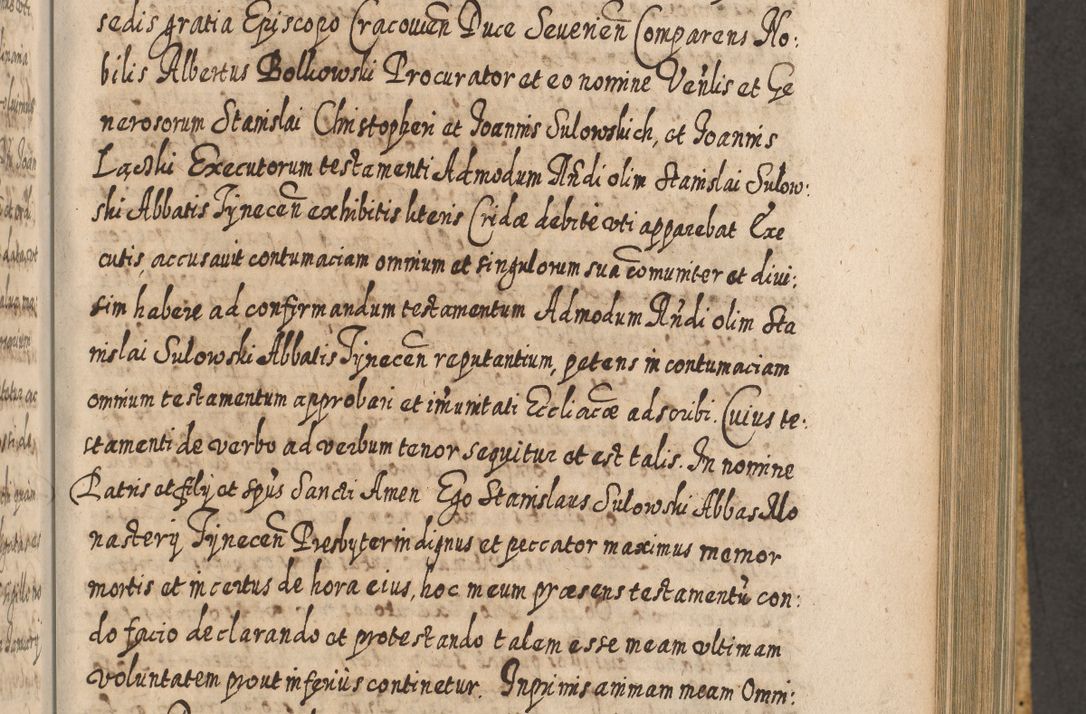 sedis gratia Episcopo Cracovien̄ Duce Severien̄ Comparens No:
bilis Albertus Bolkowski Procurator et eo nomine Ven̄lis et Ge
nerosorum Stanislai Christopheri et Joannis Sulowskich, et Joannis
Lącski Executorum testamenti Admodum Rn̄di olim Stanislai Sulow:
ski Abbatis Tynecen̄ exhibitis literis Cridæ debite uti apparebat Exe
cutis, accusavit contumaciam omnium et singulorum sua com̄uniter et divi:
sim habere ad confirmandum testamentum Admodum Rn̄di olim Sta
nislai Sulowski Abbatis Tynecen̄ reputantium, petens in contumaciam
omnium testamentum approbari et im̄unitati Eccliacæ adscribi. Cuius te:
stamenti de verbo ad verbum tenor sequitur et est talis. In nomine
Patris et filij et Spūs Sancti Amen Ego Stanislaus Sulowski Abbas Mo
nasterij Tynecen̄ Presbyter indignus et peccator maximus memor
mortis et incertus de hora eius, hoc meum præsens testamentū con:
do facio declarando et protestando talem esse meam ultimam
voluntatem prout inferiùs continetur. Inprimis animam meam Omni: